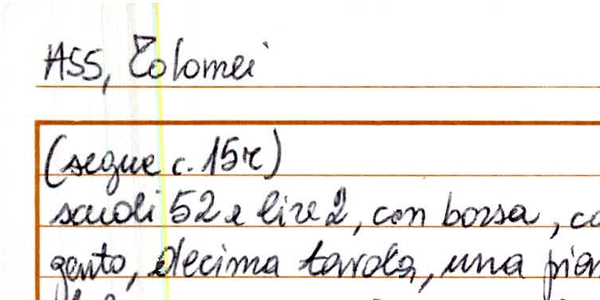 ASS, Tolomei
(segue c. 15r)
scudi 52 e lire 2, con borsa,
gento, decima tavola, una